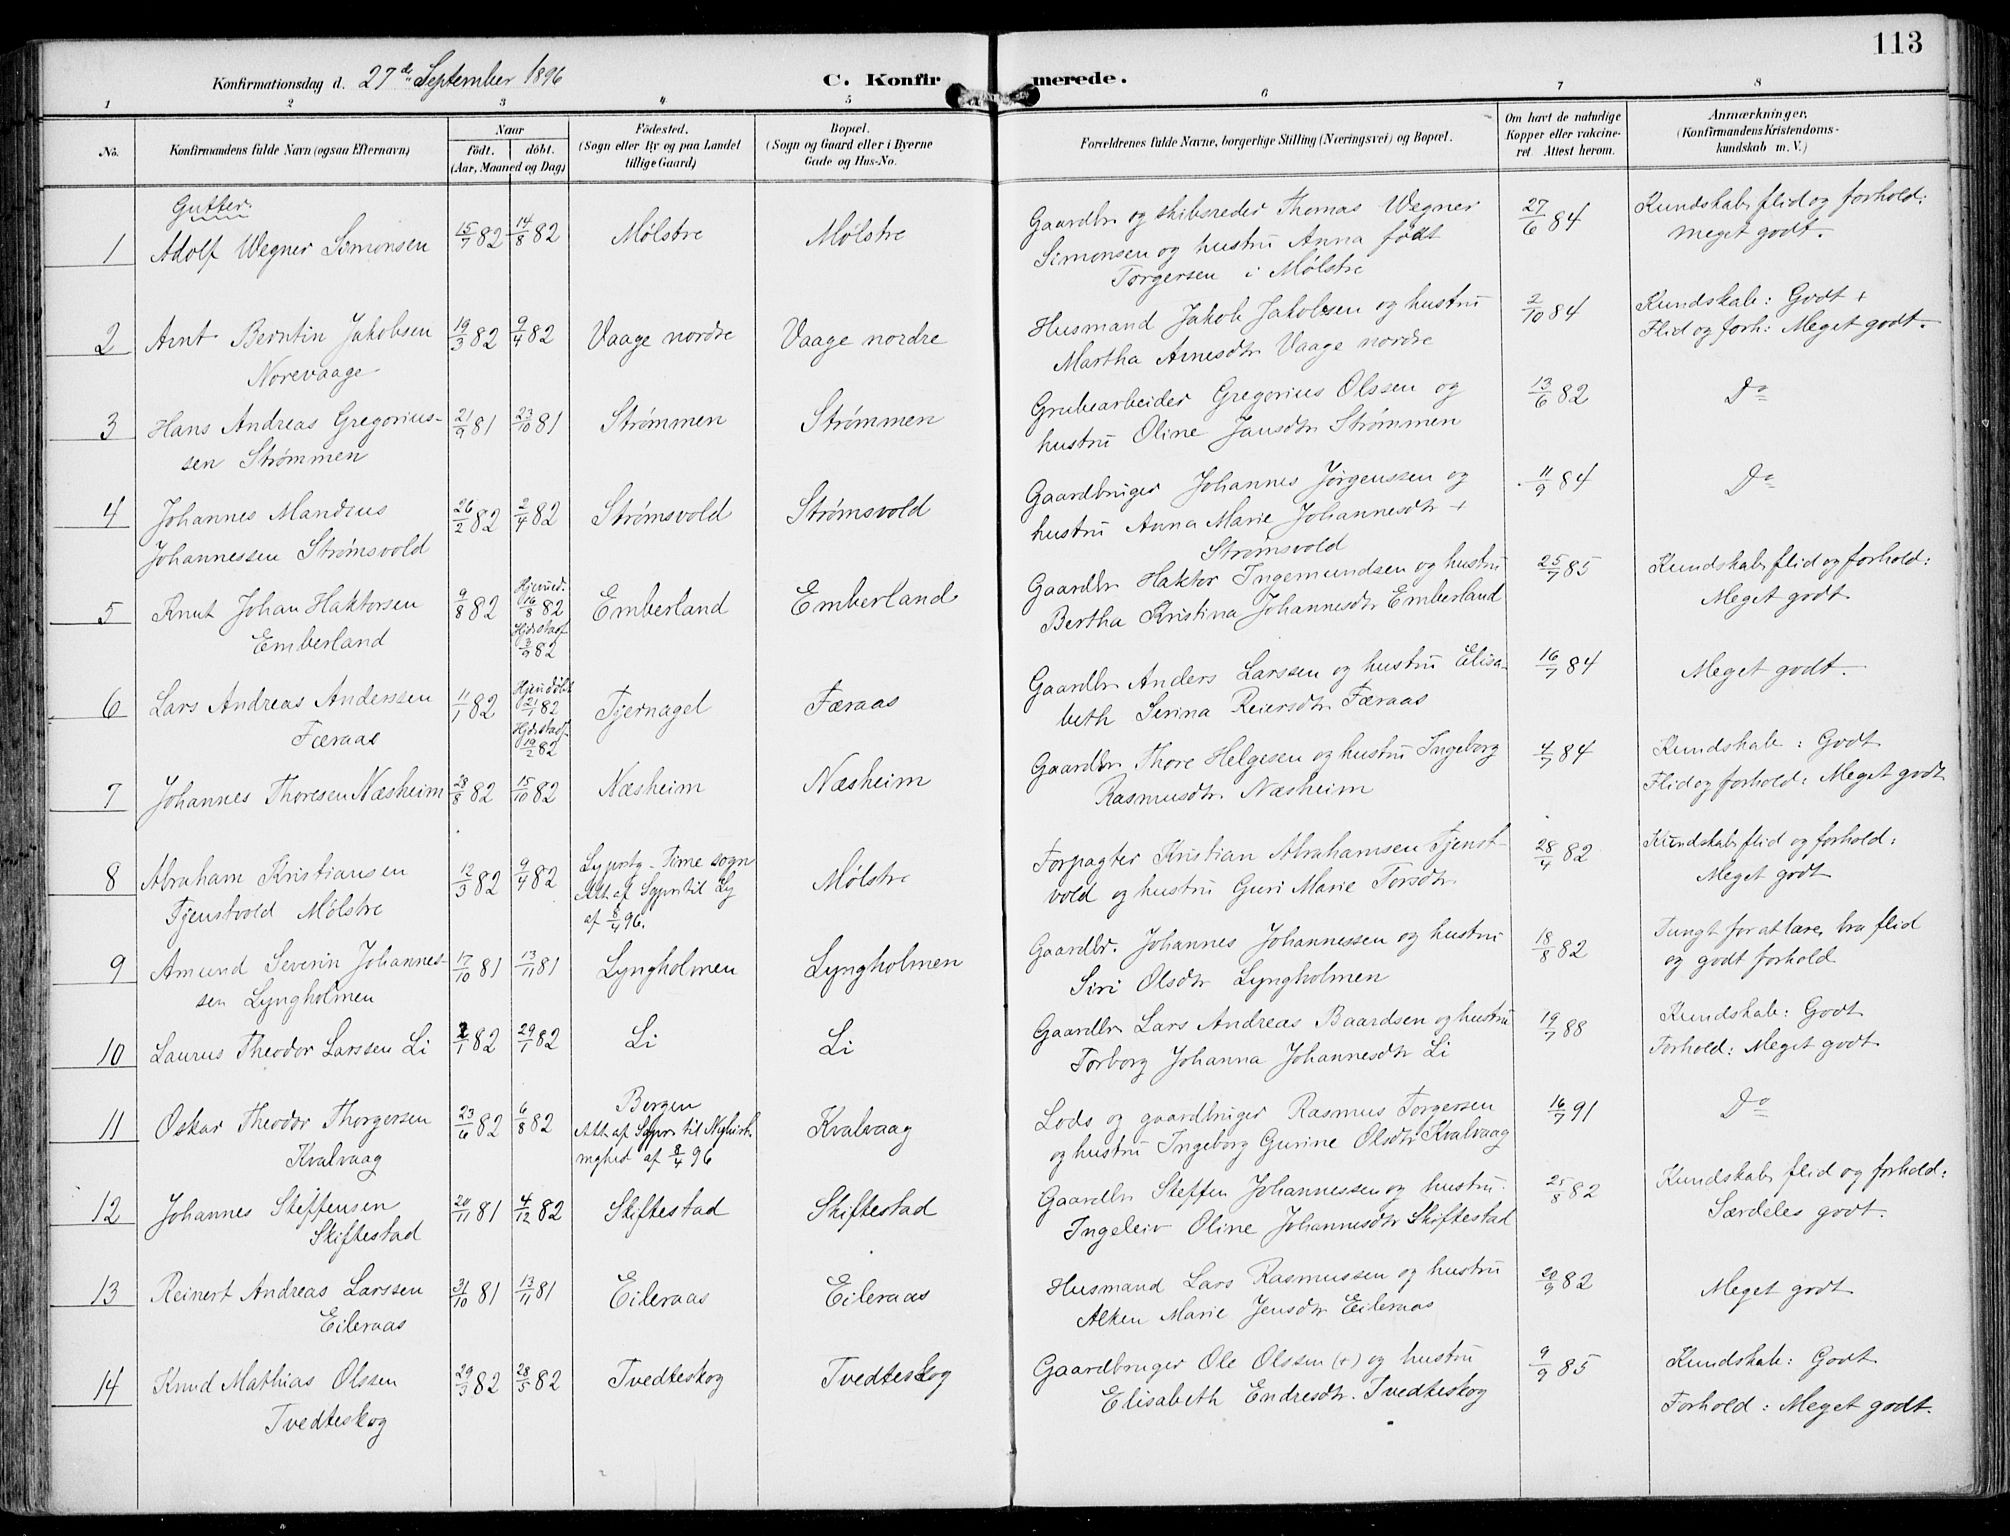 113
Konfirmationsdag d. 27de September 1896
C. Konfirmerede.
1 2 3 4 5 6 7 8
No.
Konfirmandens fulde Navn (ogsaa Efternavn)
Naar
Født. døbt.
(Aar, Maaned og Dag)
Fødested.
(Sogn eller By og paa Landet
tillige Gaard)
Bopæl.
(Sogn og Gaard eller i Byerne
Gade og Hus-No.
Forældrenes fulde Navne, borgerlige Stilling (Næringsvei) og Bopæl.
Om havt de naturlige
Kopper eller vakcine-
ret Attest herom.
Anmærkninger,
(Konfirmandens Kristendoms-
kundskab m. V.)
Gutter:
1 Adolf Wegner Simonsen 15/7 82 14/8 82 Mølstre Mølstre
Gaardbr og skibsreder Thomas Wegner
Simonsen og hustru Anna født
Torgersen i Mølstre
27/6 84
Kundskab, flid og forhold:
meget godt.
2 Arnt Berntin Jakobsen
Norevaage
19/3 82 9/4 82 Vaage nordre Vaage nordre
Husmand Jakob Jakobsen og hustru
Martha Arnesdtr Vaage nordre
2/10 84
Kundskab: Godt +
Flid og forh: Meget godt.
3 Hans Andreas Gregorius-
sen Strømmen
21/9 81 23/10 81 Strømmen Strømmen
Grubearbeider Gregorius Olssen og
hustru Oline Jansdtr Strømmen
13/6 82
Do
4 Johannes Mandius
Johannessen Strømsvold
26/2 82 2/4 82 Strømsvold Strømsvold
Gaardbruger Johannes Jørgenssen og
hustru Anna Marie Johannesdtr +
Strømsvold
11/9 84
Do
5 Knut Johan Haktorsen
Emberland
9/8 82
Hjemmed.
16/8 82
Hjdsstadf
3/9 82
Emberland Emberland
Gaardbr Haktor Ingemundsen og hustru
Bertha Kristina Johannesdtr Emberland
25/7 85
Kundskab, flid og forhold:
Meget godt
6 Lars Andreas Anderssen
Færaas
11/1 82
Hjemdøbt
21/1 82
Hjdsstadf.
19/2 82
Tjernagel Færaas
Gaardbr Anders Larssen og hustru Elisa-
beth Serina Reiersdtr Færaas
16/7 84
Meget godt.
7 Johannes Thoresen Næsheim 28/8 82 15/10 82 Næsheim Næsheim
Gaardbr Thore Helgesen og hustru Ingeborg
Rasmusdtr. Næsheim
4/7 84
Kundskab: Godt
Flid og forhold: Meget godt
8 Abraham Kristiansen
Tjenstvold Mølstre
12/3 82 9/4 82
Lyprstg - Time sogn
Att af Sgprs til Ly
af 8/4 96.
Mølstre
Forpagter Kristian Abrahamsen Tjenst-
vold og hustru Guri Marie Torsdtr
28/4 82
Kundskab flid og forhold:
Meget godt
9 Amund Severin Johannes-
sen Lyngholmen
17/10 81 13/11 81 Lyngholmen Lyngholmen
Gaardbr. Johannes Johannessen og hustru
Siri Olsdtr Lyngholmen
18/8 82
Tungt for at lære, bra flid
og godt forhold
10 Laurus Theodor Larssen Li 2/1 82 29/1 82 Li Li
Gaardbr Lars Andreas Baardsen og hustru
Torborg Johanna Johannesdtr Li
19/7 88
Kundskab: Godt
Forhold: Meget godt
11 Oskar Theodor Thorgersen
Kvalvaag
23/6 82 6/8 82
Bergen
Att af Sgpr til Nykirk.
mghed af 8/4 96
Kvalvaag
Lods og gaardbruger Rasmus Torgersen
og hustru Ingeborg Gurine Olsdtr Kvalvaag
16/7 91
Do
12 Johannes Steffensen
Skiftestad
20/11 81 4/12 82 Skiftestad Skiftestad
Gaardbr Steffen Johannessen og hustru
Ingeleiv Oline Johannesdtr Skiftestad
25/8 82
Kundskab, flid og forhold:
Særdeles godt.
13 Reinert Andreas Larssen
Eileraas
31/10 81 13/11 81 Eileraas Eileraas
Husmand Lars Rasmussen og hustru
Alken Marie Jensdtr Eileraas
20/9 82
Meget godt
14 Knud Mathias Olssen
Tvedteskog
29/3 82 28/5 82 Tvedteskog Tvedteskog
Gaardbruger Ole Olssen (+) og hustru
Elisabeth Endresdtr. Tvedteskog
9/9 85
Kundskab: Godt
Forhold: Meget godt.